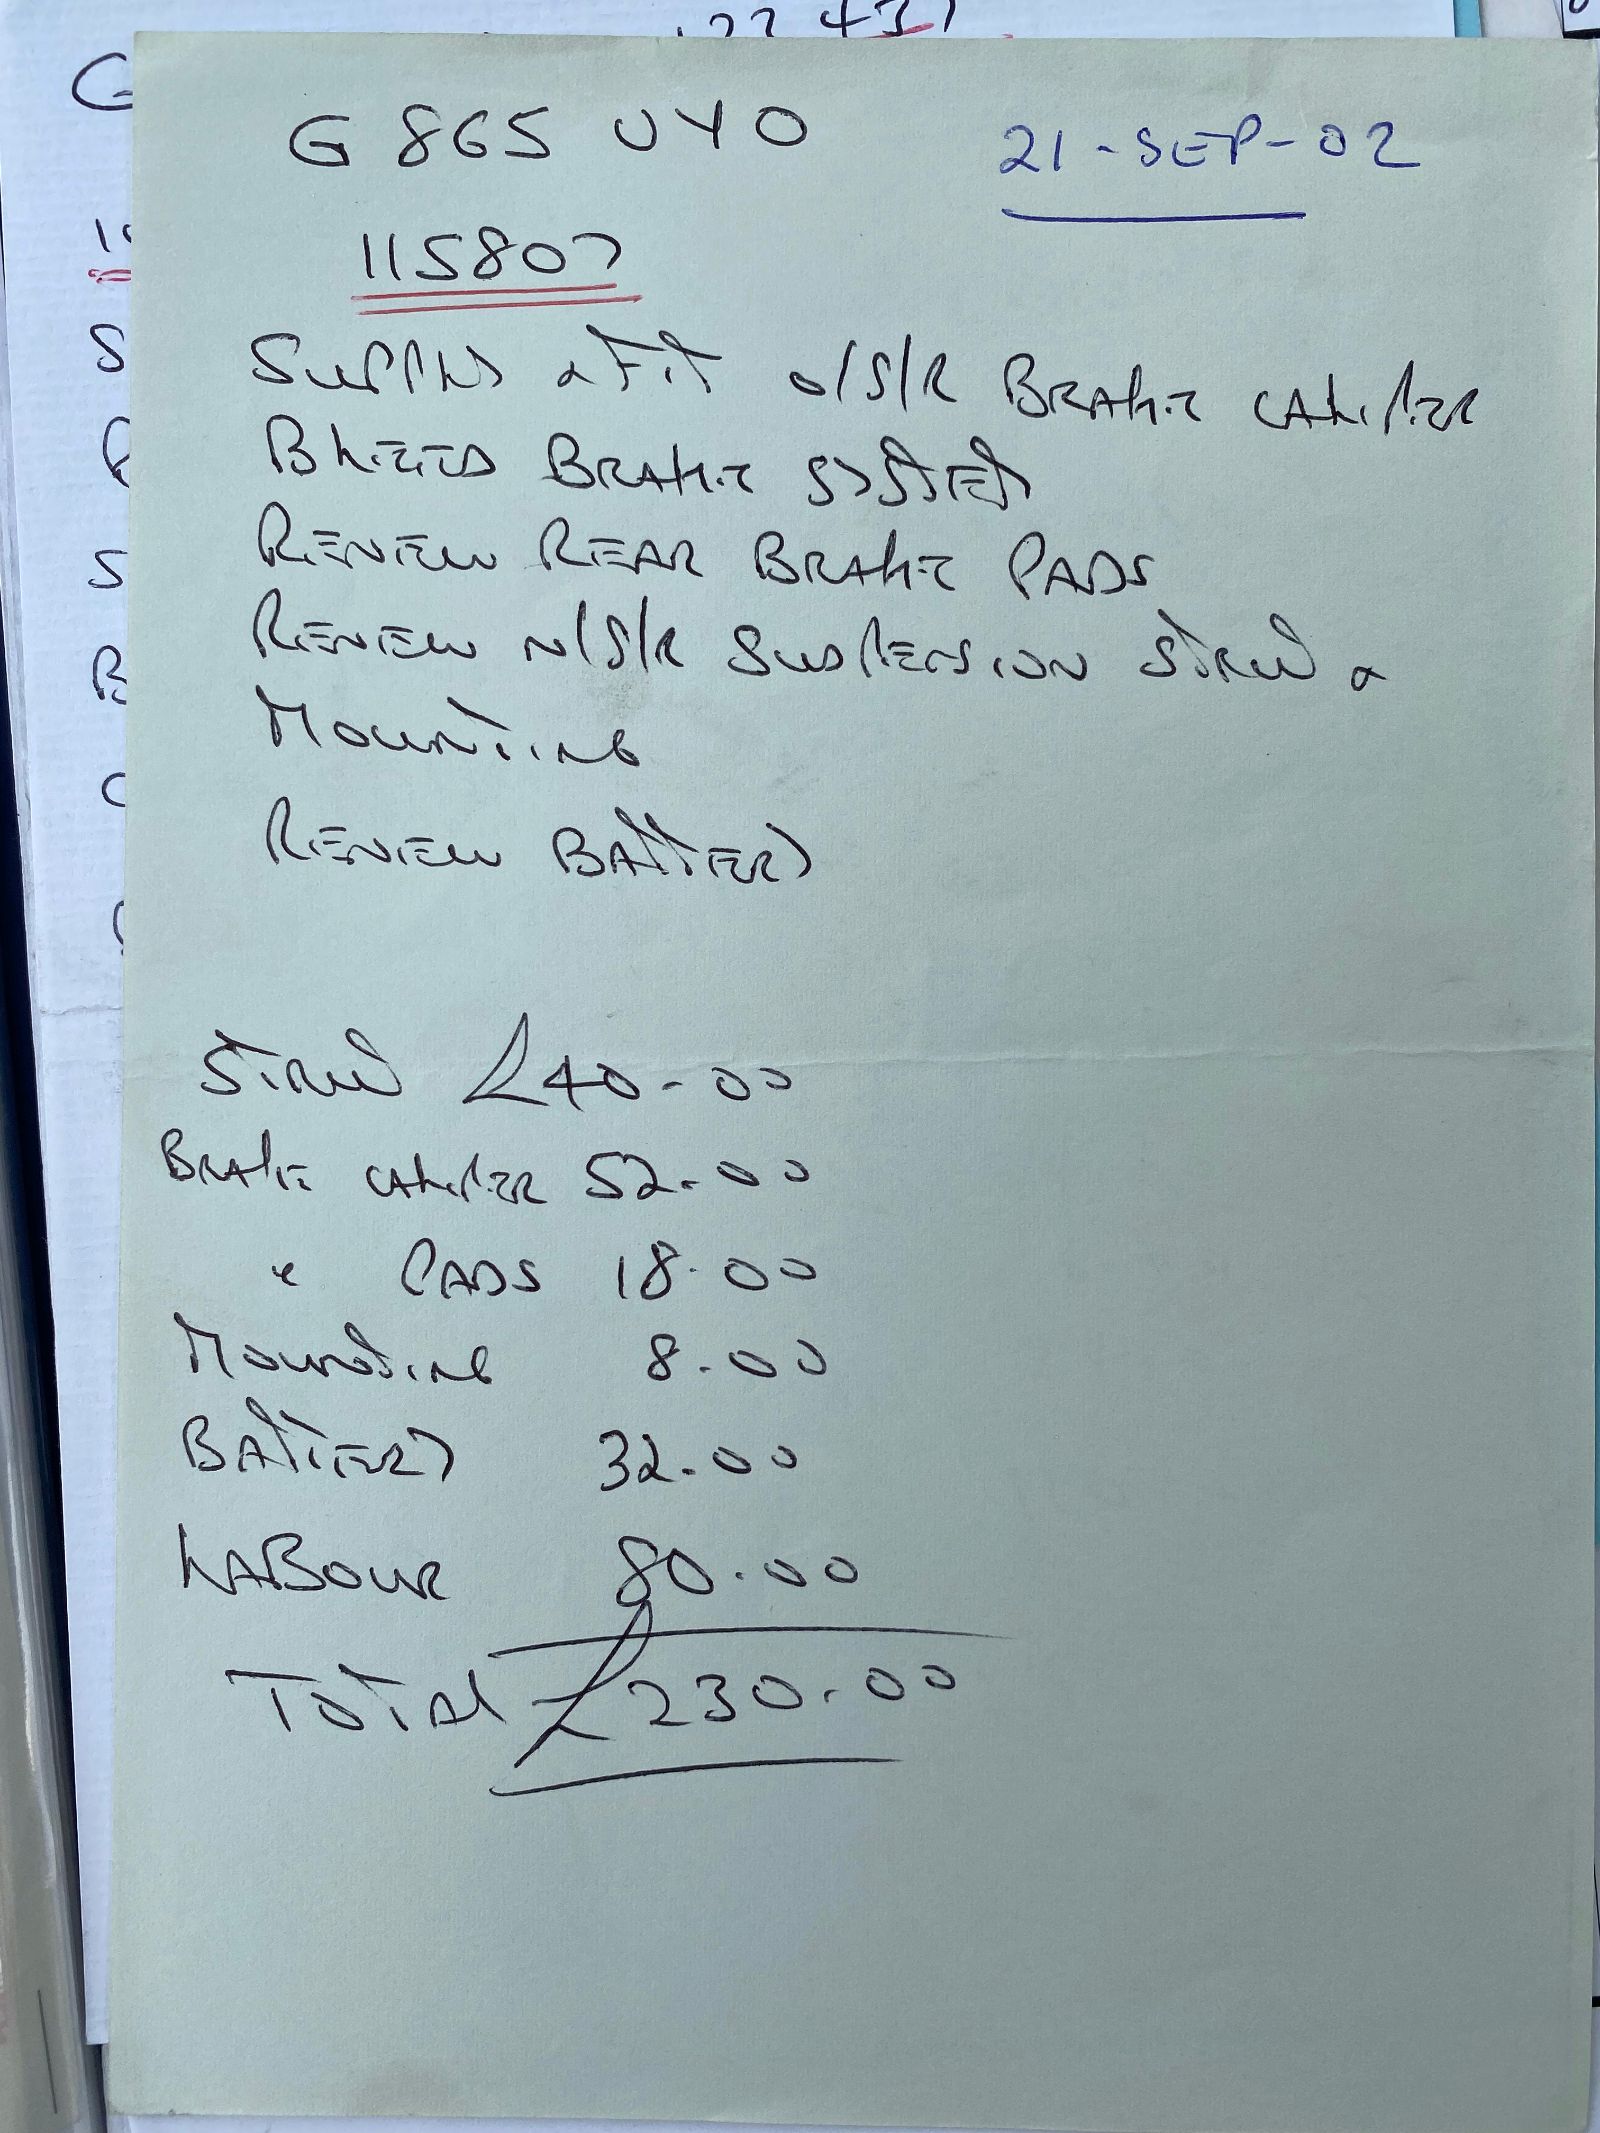 G 865 UYO
21-SEP-02
115807
SUPPLY & FIT O/S/R BRAKE CALIPER
BLEED BRAKE SYSTEM
RENEW REAR BRAKE PADS
RENEW N/S/R SUSPENSION STRUT &
MOUNTING
RENEW BATTERY
STRUT £40-00
BRAKE CALIPER 52-00
" PADS 18-00
MOUNTING 8-00
BATTERY 32-00
LABOUR 80-00
TOTAL £230-00